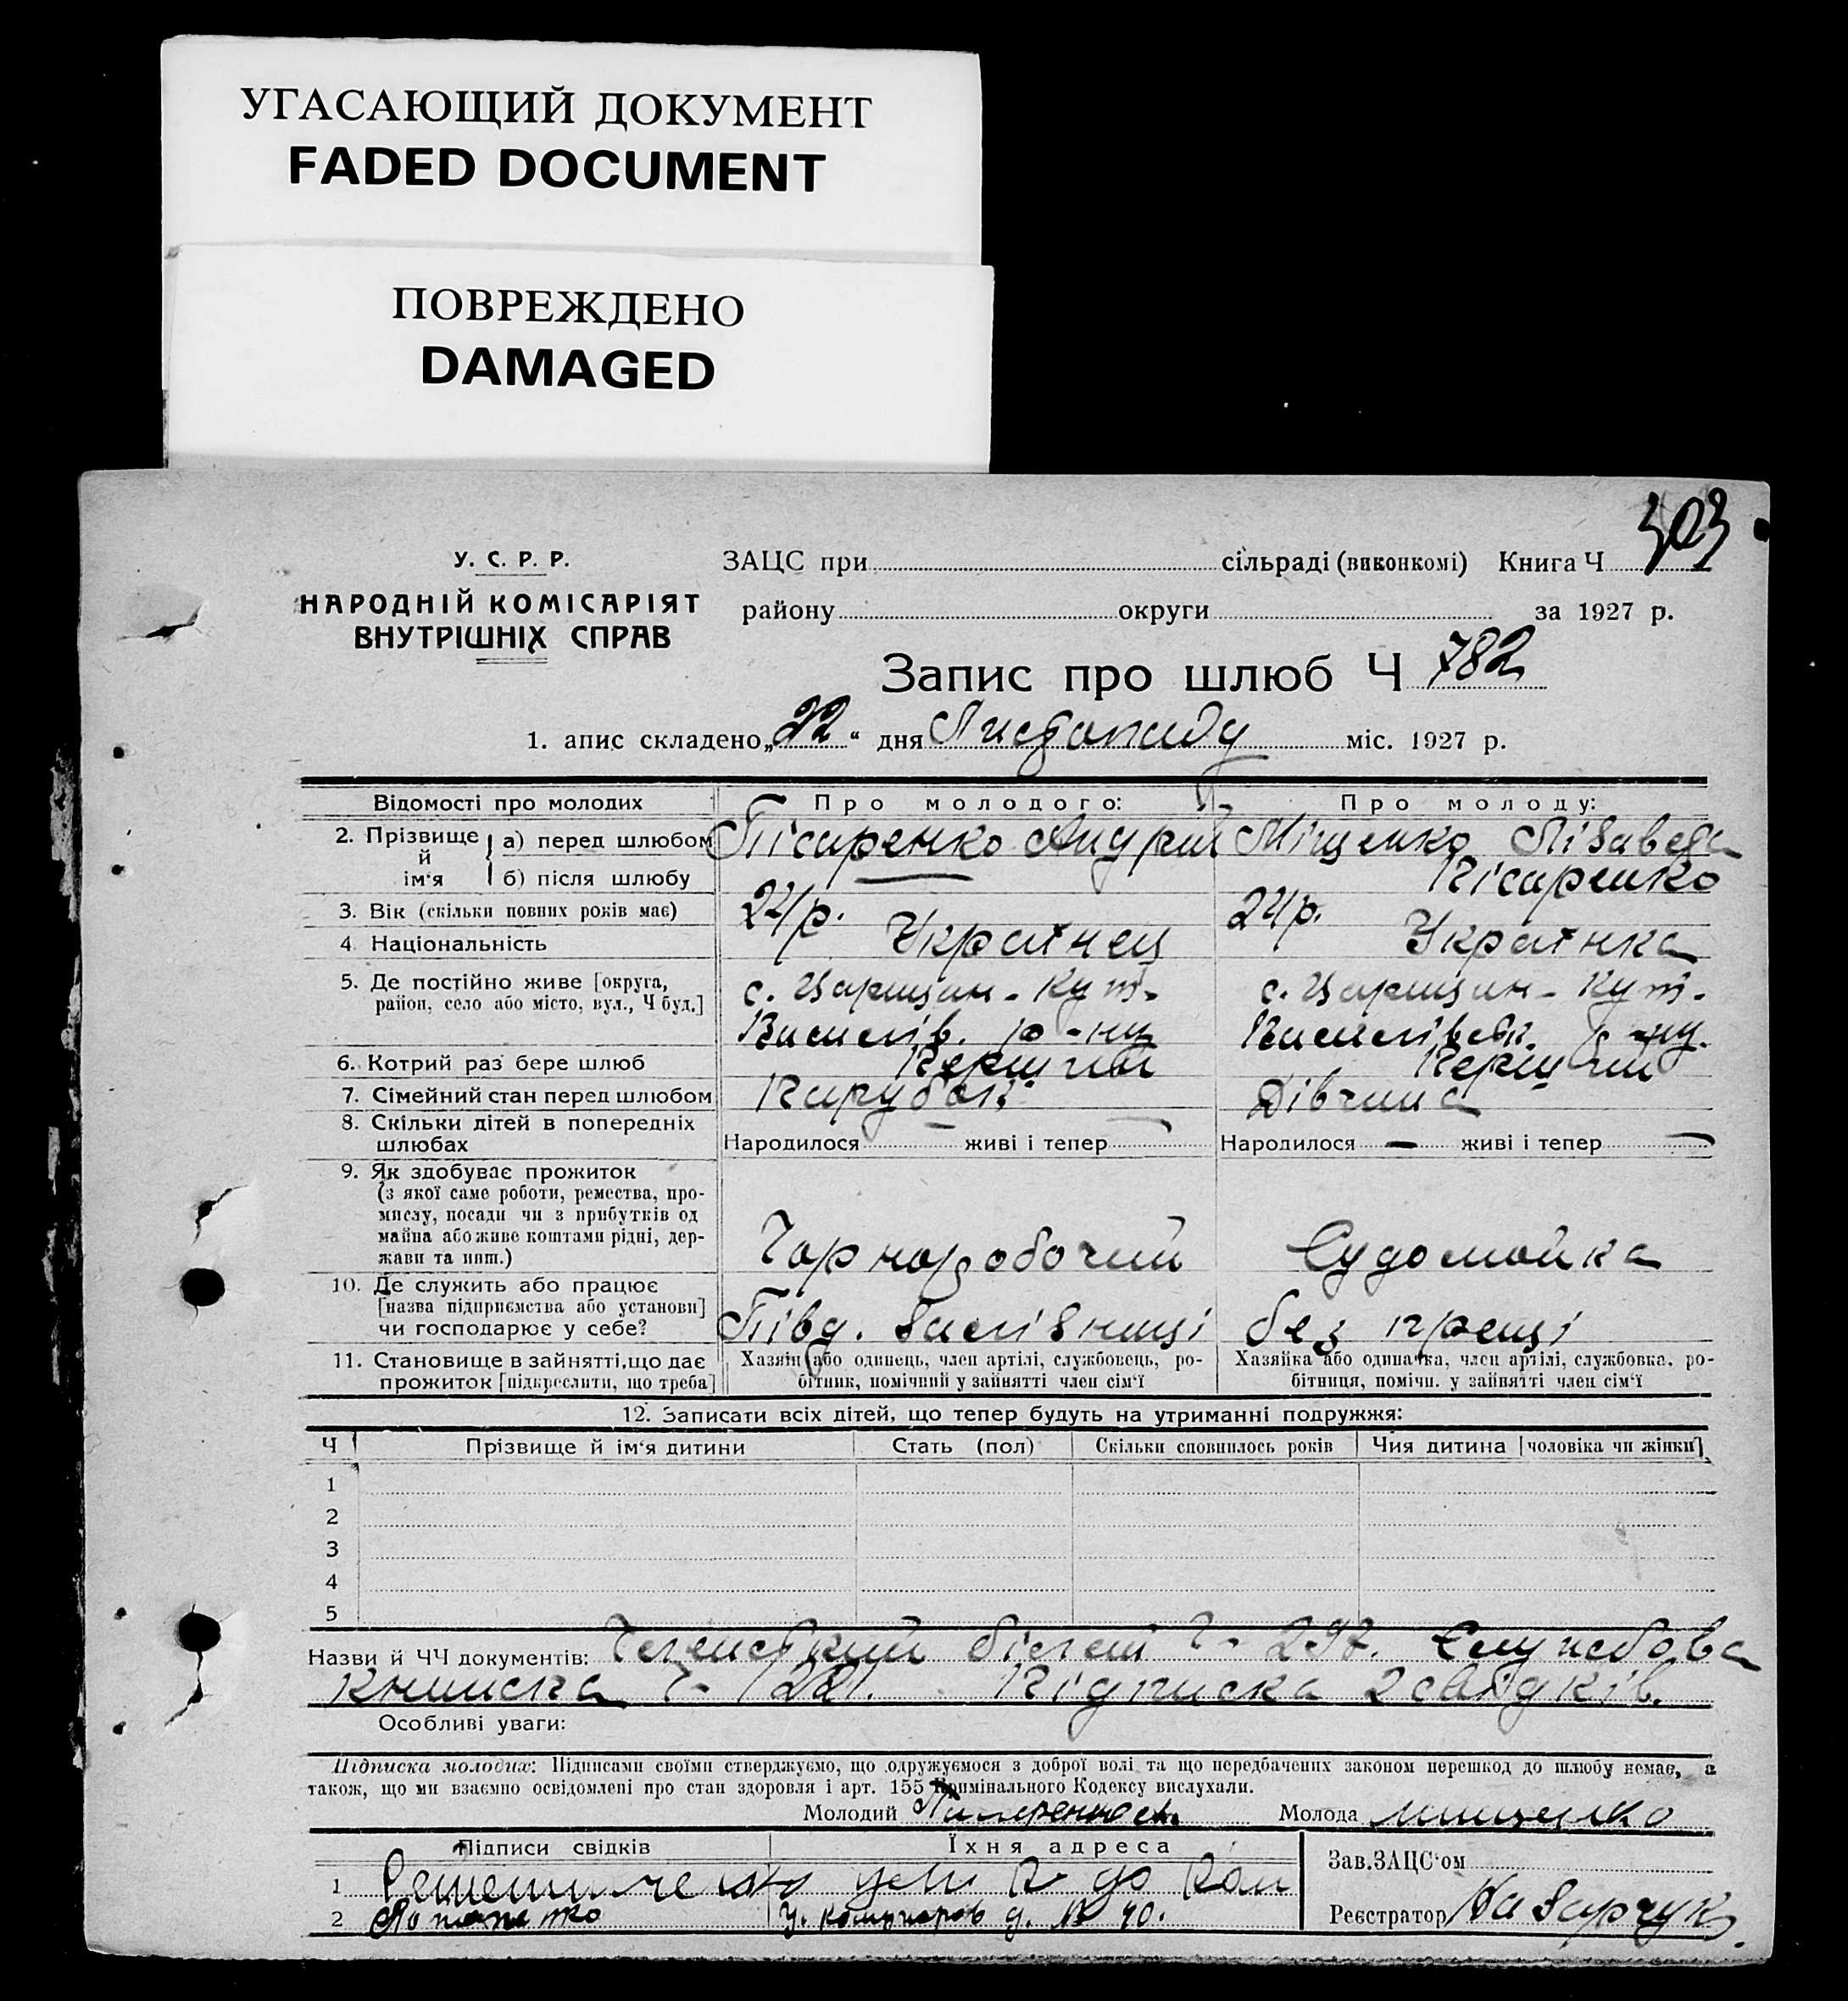 УГАСАЮЩИЙ ДОКУМЕНТ
FADED DOCUMENT
ПОВРЕЖДЕНО
DAMAGED
303
У. С. Р. Р.
НАРОДНІЙ КОМІСАРІЯТ
ВНУТРІШНІХ СПРАВ
ЗАЦС при сільраді (виконкомі) Книга Ч
району округи за 1927 р.
Запис про шлюб Ч 782
1. апис складено „22“ дня Листопаду міс. 1927 р.
Відомості про молодих Про молодого: Про молоду:
2. Прізвище й ім‘я а) перед шлюбом Пісаренко Андрій Міщенко Лізавета
б) після шлюбу Пісаренко
3. Вік (скільки повних років має) 24р. 24р.
4. Національність Українец Українка
5. Де постійно живе [округа, с. Царицин-Кут. с. Царицин-Кут.
район, село або місто, вул., Ч буд.] Василів. р-ну Василівськ. р-ну.
6. Котрий раз бере шлюб Перший Перший
7. Сімейний стан перед шлюбом Парубок Дівчина
8. Скільки дітей в попередніх
шлюбах Народилося — живі і тепер — Народилося — живі і тепер —
9. Як здобуває прожиток
(з якої саме роботи, ремества, про-
мислу, посади чи з прибутків од
майна або живе коштами рідні, дер-
жави та инш.) Чорноробочий Судомойка
10. Де служить або працює
[назва підприємства або установи]
чи господарює у себе? Півд. Залізниці без праці
11. Становище в зайнятті, що дає Хазяїн або одинець, член артілі, службовець, ро- Хазяйка або одиначка, член артілі, службовка, ро-
прожиток [підкреслити, що треба] бітник, помічний у зайнятті член сім‘ї бітниця, помічн. у зайнятті член сім‘ї
12. Записати всіх дітей, що тепер будуть на утриманні подружжя:
Ч Прізвище й ім‘я дитини Стать (пол) Скільки сповнилось років Чия дитина [чоловіка чи жінки]
1
2
3
4
5
Назви й ЧЧ документів: Членський білет Ч- 297. Службова
книжка Ч- 1221. Підписка 2 свідків.
Особливі уваги:
Підписка молодих: Підписами своїми стверджуємо, що одружуємося з доброї волі та що передбачених законом перешкод до шлюбу немає, а
також, що ми взаємно освідомлені про стан здоров‘я і арт. 155 Кримінального Кодексу вислухали.
Молодий Молода Мищенко
Підписи свідків Їхня адреса
Зав.ЗАЦС‘ом
1
2 Потапенко у. Комунаров д. № 40.
Реєстратор